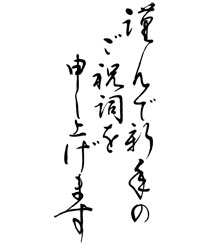 謹んで新年の
ご祝詞を
申し上げます